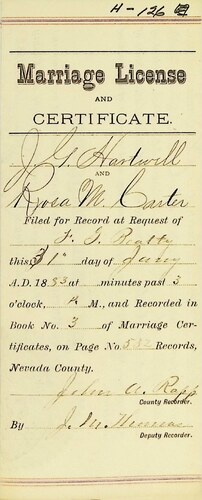 H-126
Marriage License
AND
CERTIFICATE.
J. G. Hartwell
AND
Rosa M. Carter
Filed for Record at Request of
F. G. Beatty
this 31st day of
A.D. 1883 at minutes past 3
o'clock, M., and Recorded in
Book No. 3 of Marriage Cer-
tificates, on Page No. Records,
Nevada County.
John A. Rapp
County Recorder.
By J. M.
Deputy Recorder.